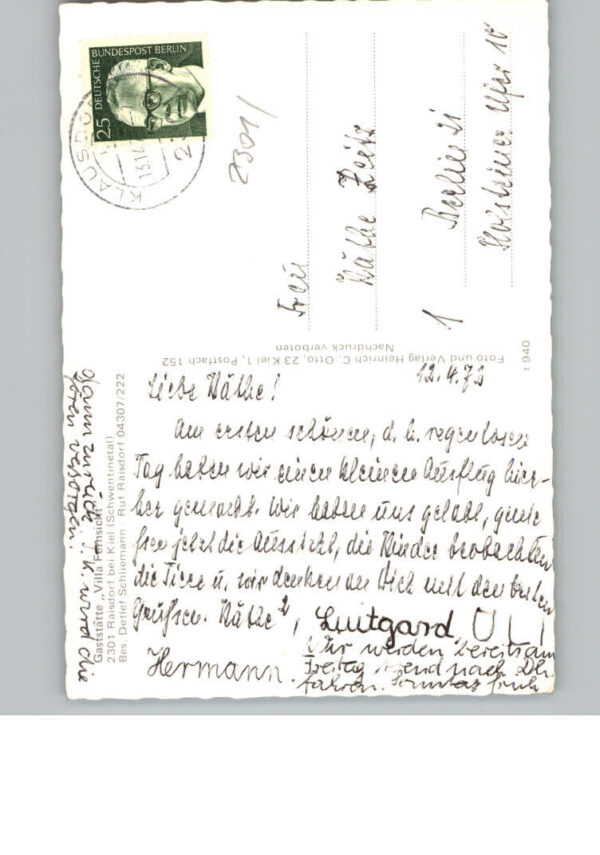 DEUTSCHE BUNDESPOST BERLIN
25
KLAUSDO
2301/
Frau
Käthe
1 Berlin 21
Holsteiner Ufer 10
Foto und Verlag Heinrich C. Otto, 23 Kiel 1, Postfach 152
Nachdruck verboten
t 940
Gaststätte „Villa Fernsicht"
2301 Raisdorf bei Kiel (Schwentinetal)
Bes. Detlef Schliemann Ruf Raisdorf 04307/222
12.4.72
Liebe Käthe!
Am ersten schönen, d. h. regenlosen
Tag haben wir einen kleinen Ausflug hier-
her gemacht. Wir haben uns gelabt, genie
ßen jetzt die Aussicht, die Kinder beobachten
die Tiere u. wir denken an Dich mit den besten
Grüßen. Käthe 2, Luitgard ULI
Hermann.
Wir werden bereits am
Freitag Abend nach
fahren. Sonntag früh
dann zurück. K. wird die